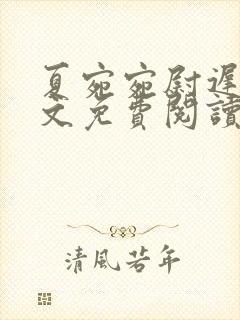 夏宛宛尉遲
文免費閱讀
清風若年